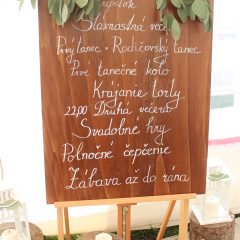 Slávnostná več
Prvý tanec · Rodičovský tanec
Prvé tanečné kolo
Krájanie torty
22,00 Druhá večera
Svadobné hry
Polnočné čepčenie
Zábava až do rána